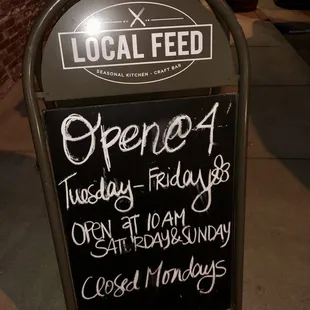 LOCAL FEED
SEASONAL KITCHEN - CRAFT BAR
Open@4
Tuesday-Friday
OPEN AT 10AM
SATURDAY&SUNDAY
Closed Mondays